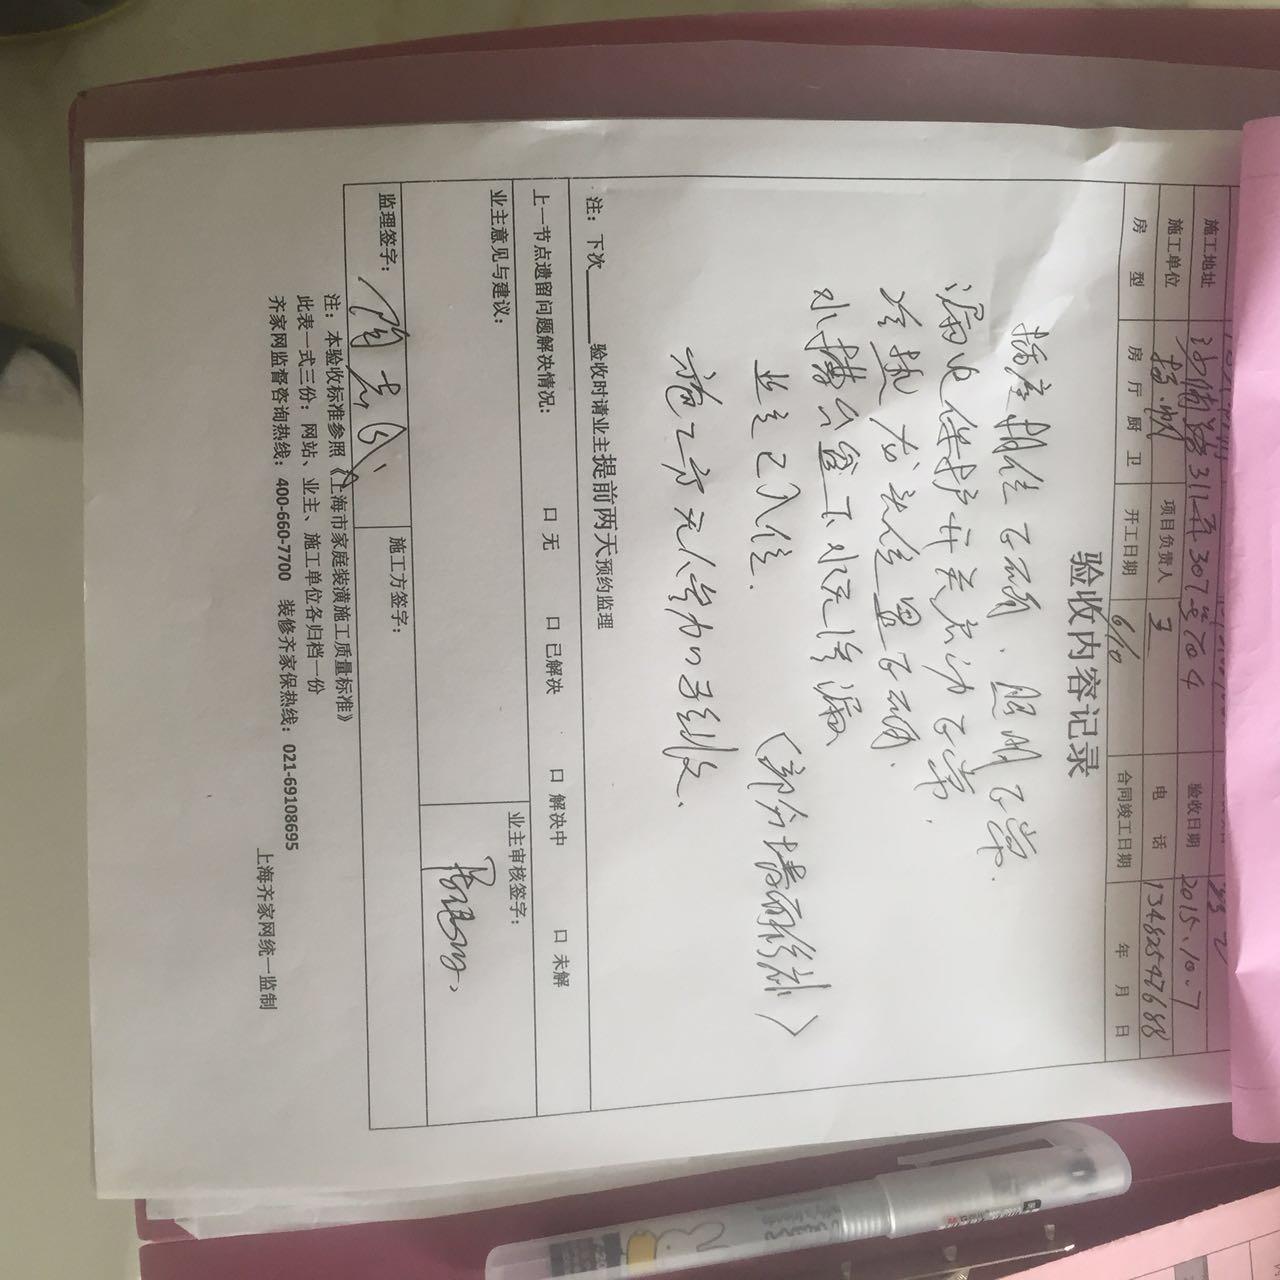 施工地址 沙浦路311弄307号704 验收日期 2015.10.7
施工单位 扬帆 项目负责人 王 电 话 13482547688
房 型 房 厅 厨 卫 开工日期 6/10 合同竣工日期 年 月 日
验收内容记录
插座相位正确、照明正常.
漏电保护开关启动正常.
冷热龙头位置正确.
水槽台盆下水无渗漏
业主已入住. (部分墙面修补)
施工方无人参加
注：下次______验收时请业主提前两天预约监理
上一节点遗留问题解决情况： 口 无 口 已解决 口 解决中 口 未解
业主意见与建议： 业主审核签字：
监理签字： 施工方签字：
注：本验收标准参照《上海市家庭装潢施工质量标准》
此表一式三份：网站、业主、施工单位各归档一份
齐家网监督咨询热线：400-660-7700 装修齐家保热线：021-69108695
上海齐家网统一监制